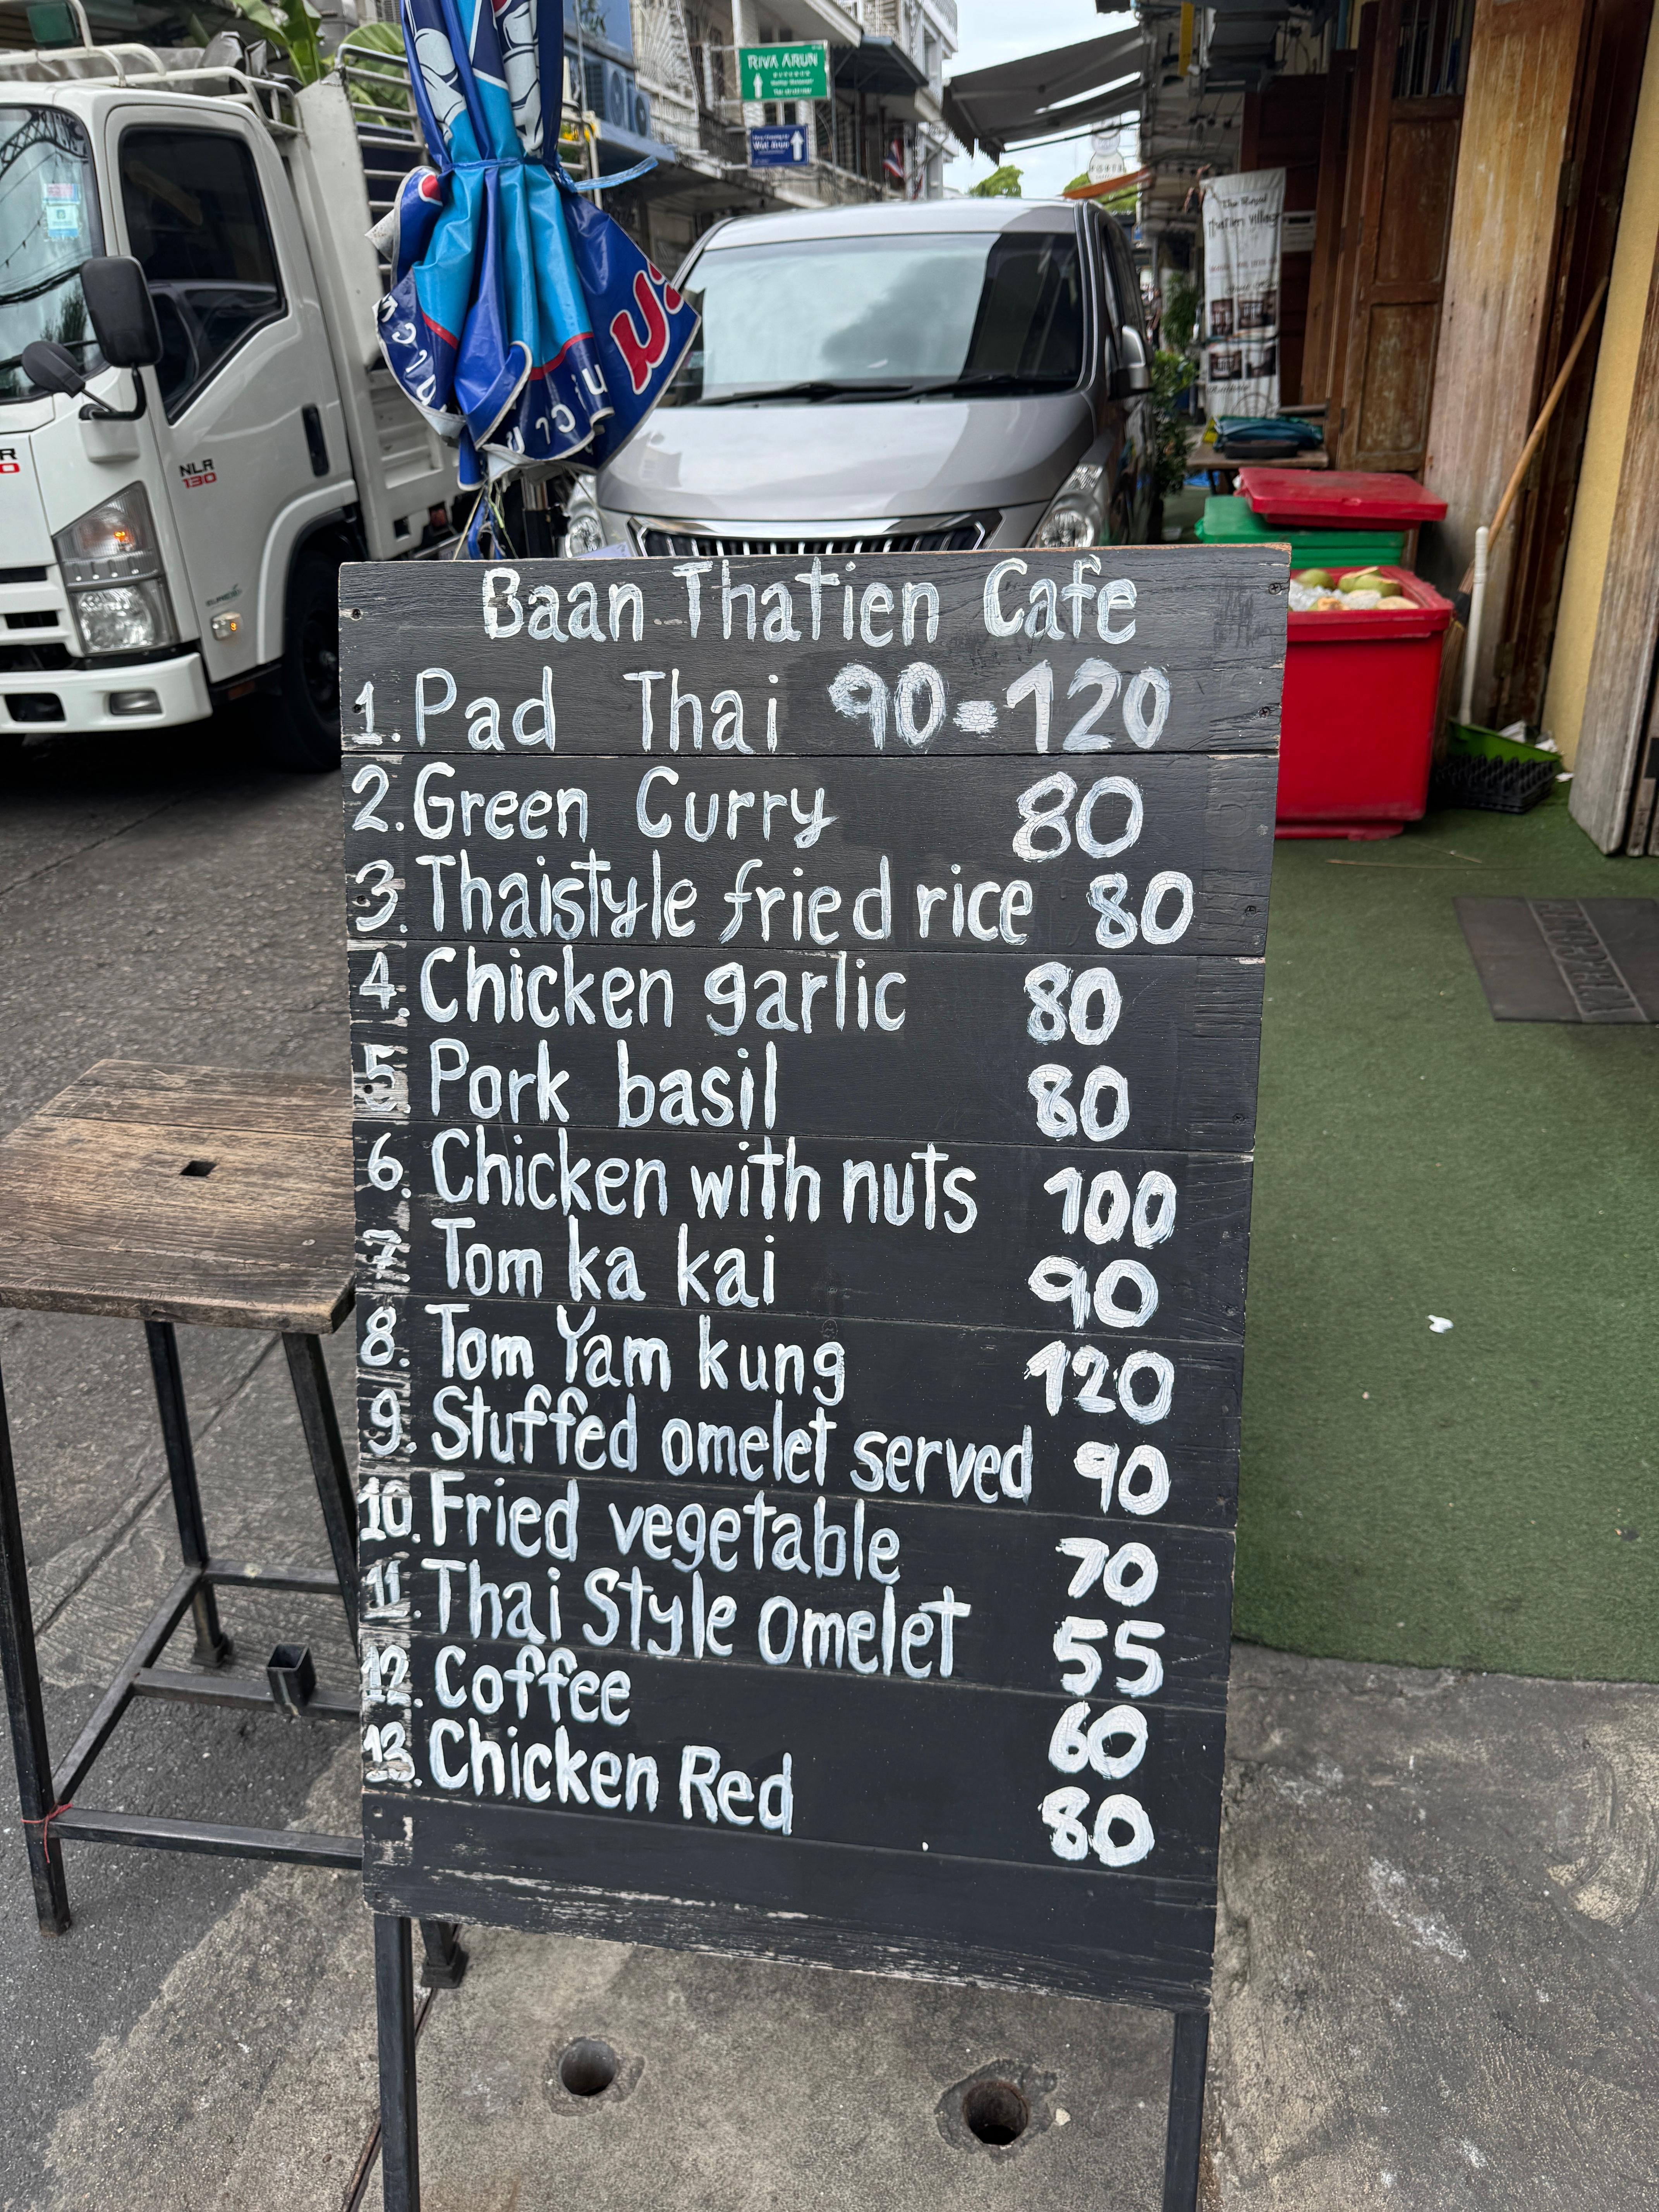 RIVA ARUN
Wat Arun
The Royal
ThaTien Village
NLR
130
WELCOME
Baan Thatien Cafe
1. Pad Thai 90-120
2. Green Curry 80
3. Thaistyle fried rice 80
4. Chicken garlic 80
5. Pork basil 80
6. Chicken with nuts 100
7. Tom ka kai 90
8. Tom Yam kung 120
9. Stuffed omelet served 90
10. Fried vegetable 70
11. Thai Style Omelet 55
12. Coffee 60
13. Chicken Red 80